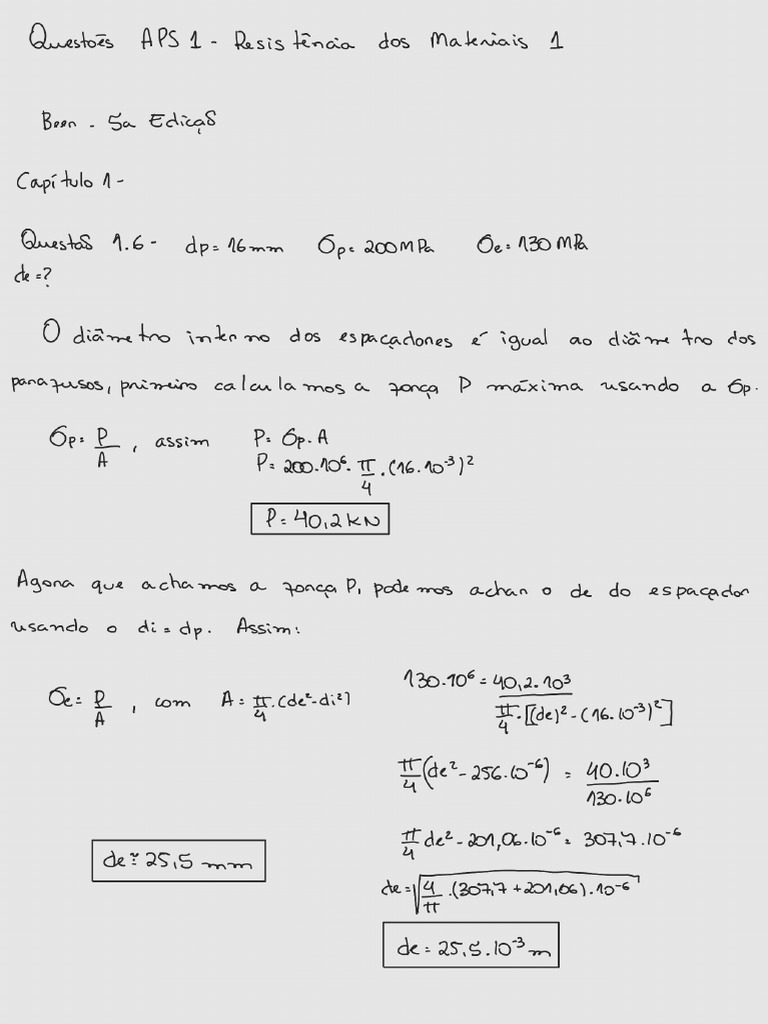 Questões APS 1 - Resistência dos Materiais 1
Beer - 5a Edição
Capítulo 1 -
Questão 1.6 - dp = 16mm σp = 200MPa σe = 130 MPa
de = ?
O diâmetro interno dos espaçadores é igual ao diâmetro dos
parafusos, primeiro calculamos a força P máxima usando a σp.
σp = P/A , assim P = σp . A
P = 200.10⁶ . π/4 . (16.10⁻³)²
P = 40,2 kN
Agora que achamos a força P, podemos achar o de do espaçador
usando o di = dp. Assim:
σe = P/A , com A = π/4 . (de² - di²)
130.10⁶ = 40,2.10³ / π/4 . [(de)² - (16.10⁻³)²]
π/4 (de² - 256.10⁻⁶) = 40.10³ / 130.10⁶
π/4 de² - 201,06.10⁻⁶ = 307,7.10⁻⁶
de = √(4/π . (307,7 + 201,06) . 10⁻⁶)
de = 25,5.10⁻³ m
de ≅ 25,5 mm